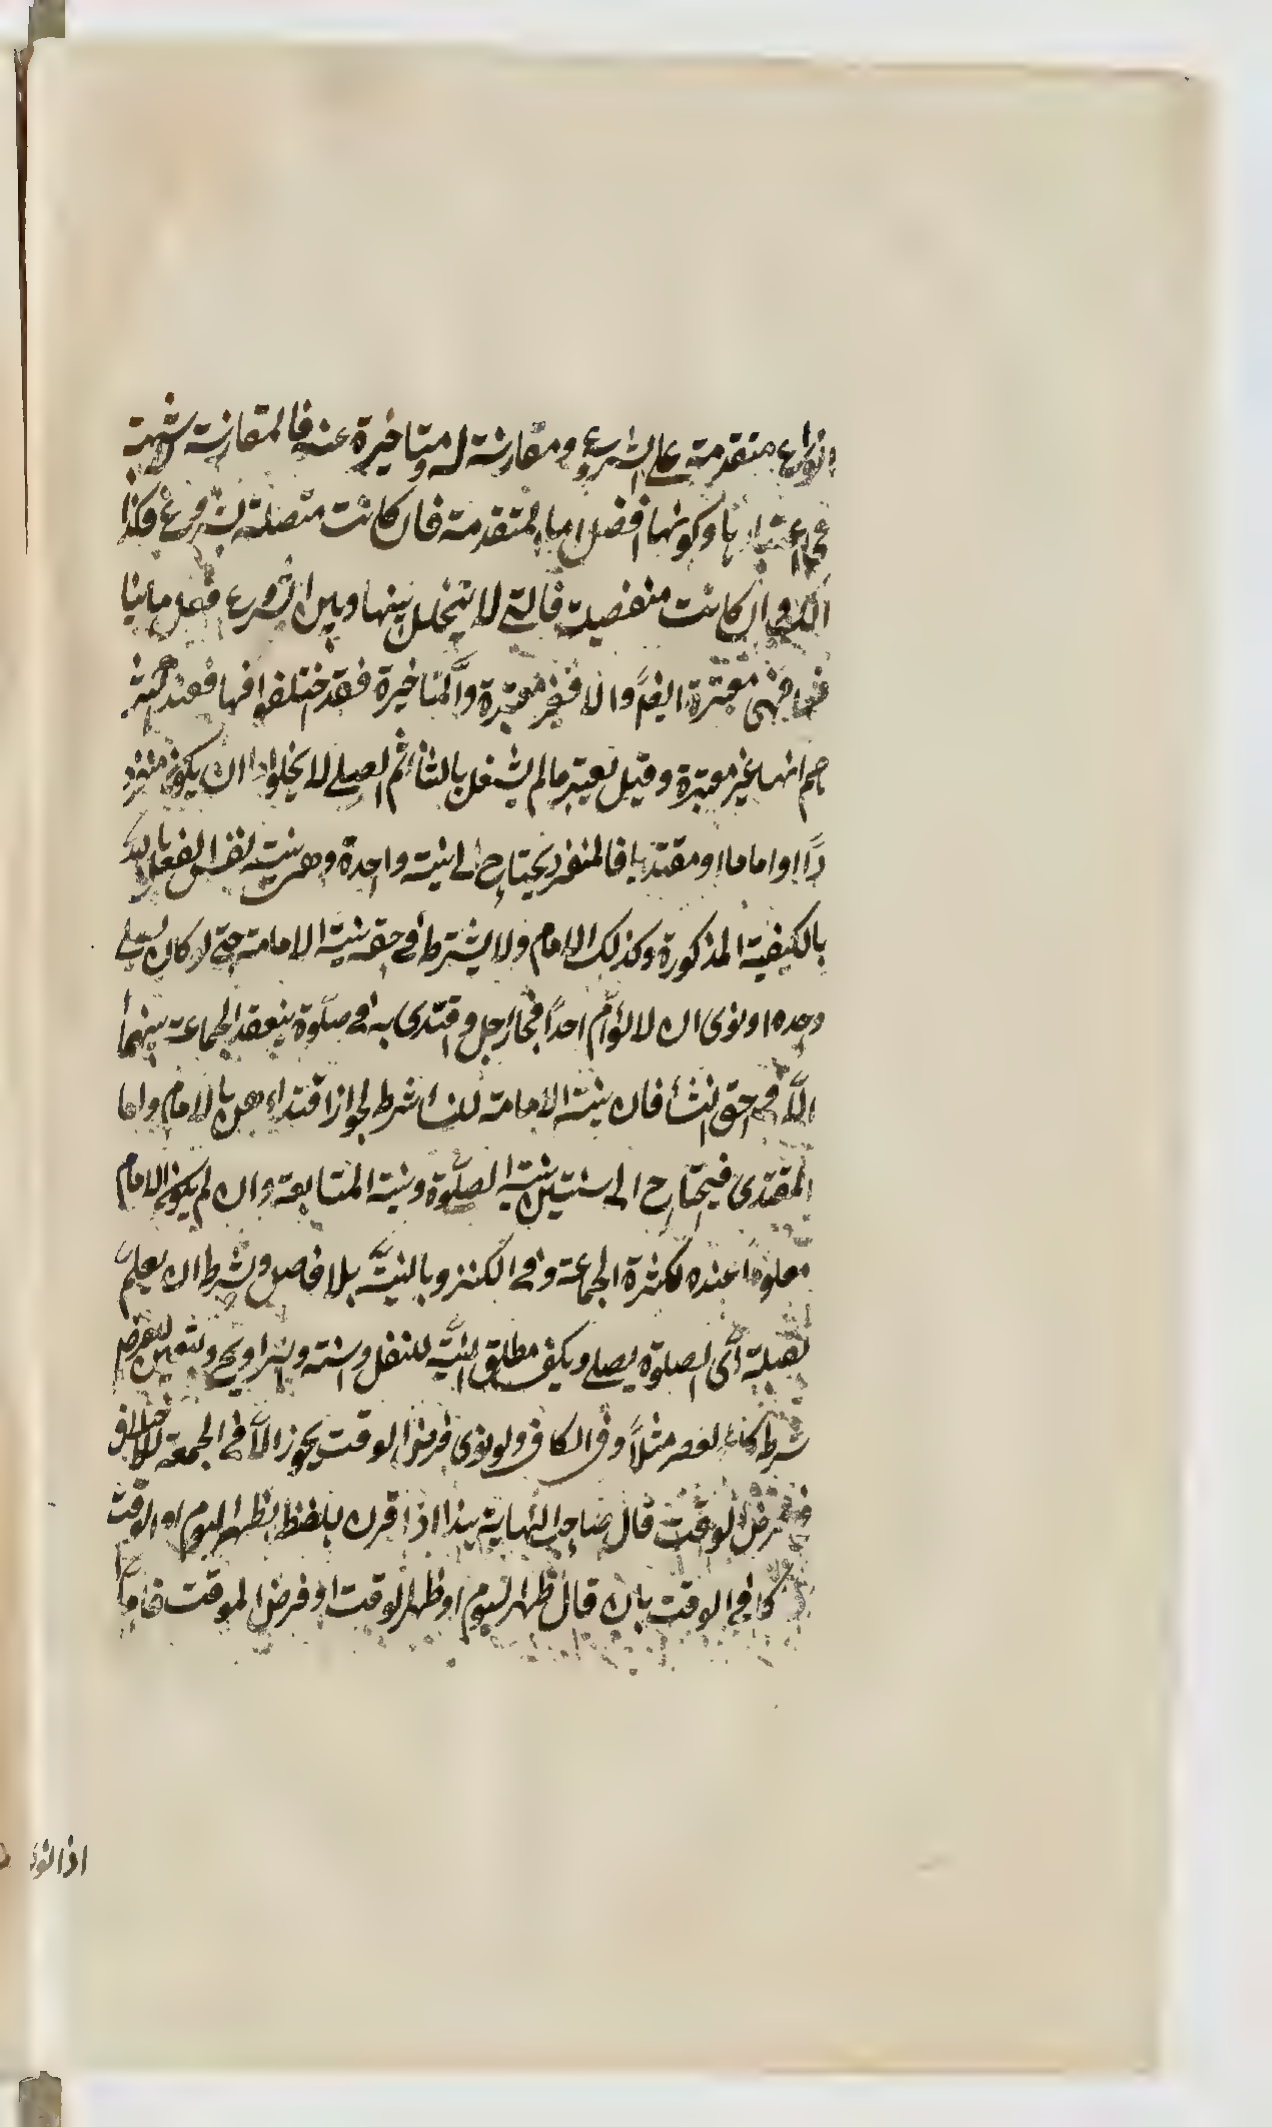 انواع متقدمة على الشروع ومقارنة له ومتاخيرة عنه فالمقارنة لا شبهة
في اعتبارها وكونها افضل اما المتقدمة فان كانت متصلة بشروع فكذا
وان كانت منفصلت فالتى لا يتخلل بينها وبين الشروع فعل مانيا
فهى معتبرة ايضًا والا فغير معتبرة والمتاخيرة فقد اختلفوا فيها فعند
انها غير معتبرة وقيل تعتبر مالم يشغل بالثنا ثم المصلى لا يخلوا ان يكون منفرد
دًا او اماما او مقتديا فالمنفرد يحتاج الى نية واحدة وهى نية نفس الفعل
بالكيفية المذكورة وكذلك الامام ولا يشترط فى حقه نية الامامة حتى لو كان يصلى
وحده او نوى ان لا يؤم احدًا فجاء رجل واقتدى به فى صلوة ينعقد الجماعة بينهما
الا فى حق النساء فان نية الامامة للنساء شرط لجواز اقتداءهن بالامام واما
المقتدى فيحتاج الى نيتين نية الصلوة ونية المتابعة وان لم يكون الامام
معلومًا عنده لكثرة الجماعة وفى الكنز وبالنية بلا فاصل وشرط ان يعلم
بقلبه اى الصلوة يصلى ويكفى مطلق النية للنفل والسنة والتراويح وتعيين للفرض
شرط كالعصر مثلًا وفى الكافى ولو نوى فرض الوقت يجوز الا فى الجمعة للاختلاف
فى فرض الوقت قال صاحب النهاية هذا اذا قرن بلفظ بظهر اليوم او الوقت
كا فى الوقت بان قال ظهر اليوم او ظهر الوقت او فرض الموقت فاما
اذا نوى